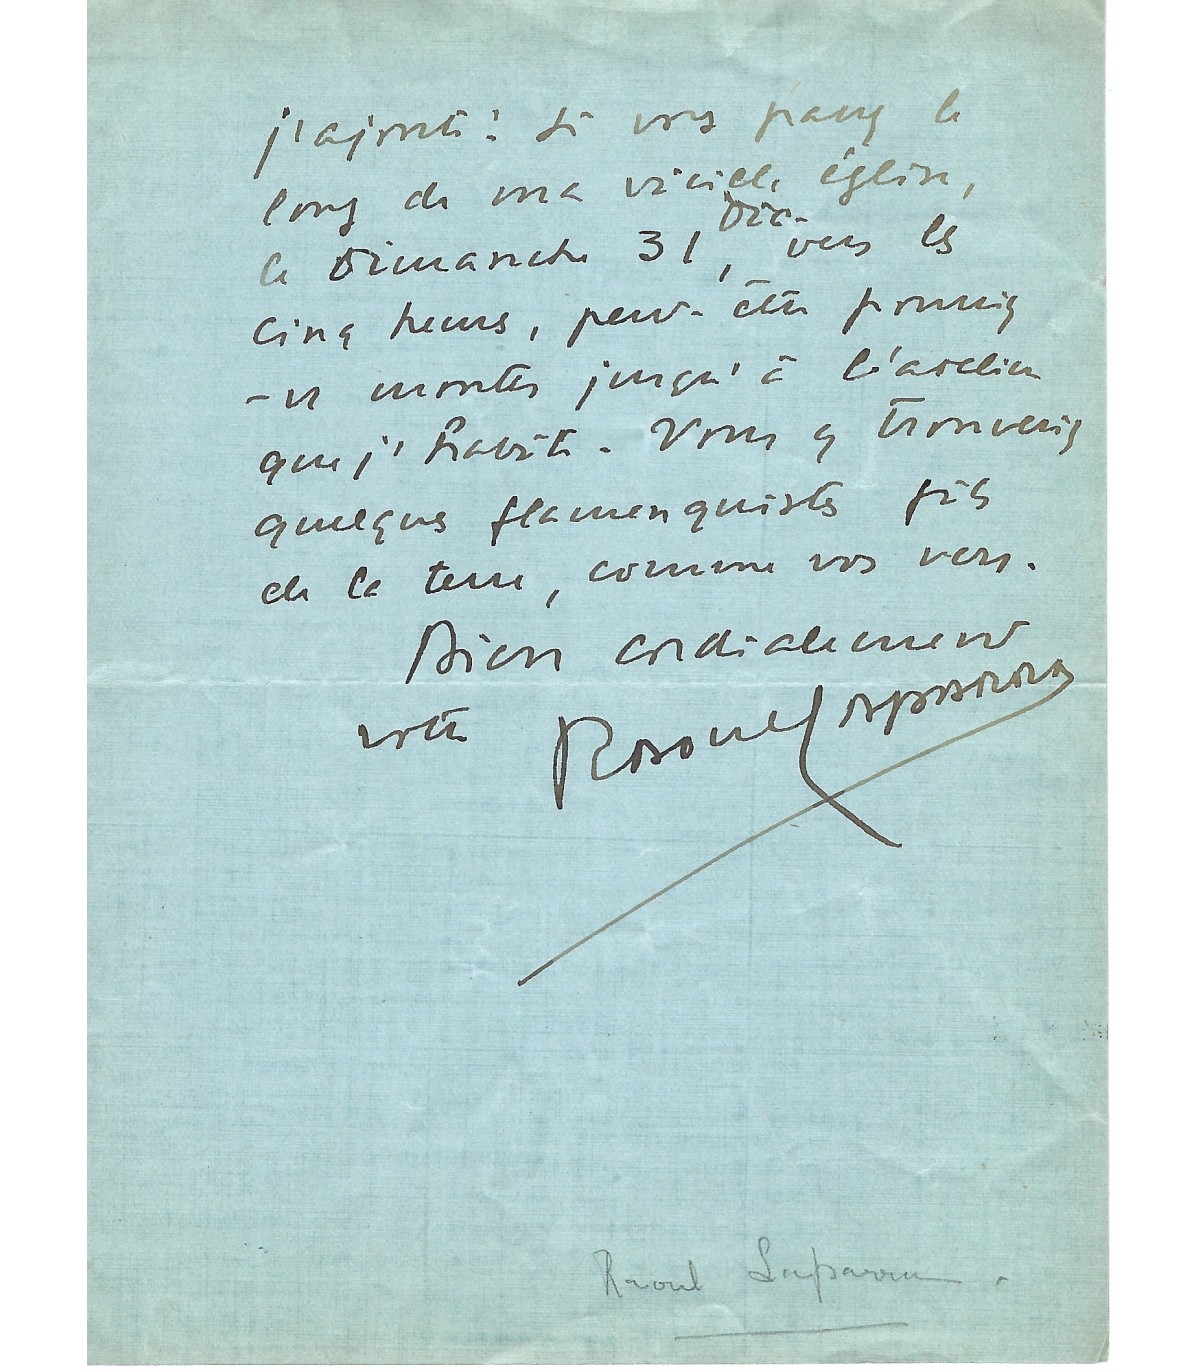 j'ajoute : Si vous passez le
long de ma vieille église,
le Dimanche 31 Déc., vers les
cinq heures, peut-être pourriez
-vs monter jusqu'à l'atelier
que j'habite. Vous y trouverez
quelques flamenquistes fils
de la terre, comme vos vers.
Bien cordialement
votre Raoul Laparra
Raoul Laparra